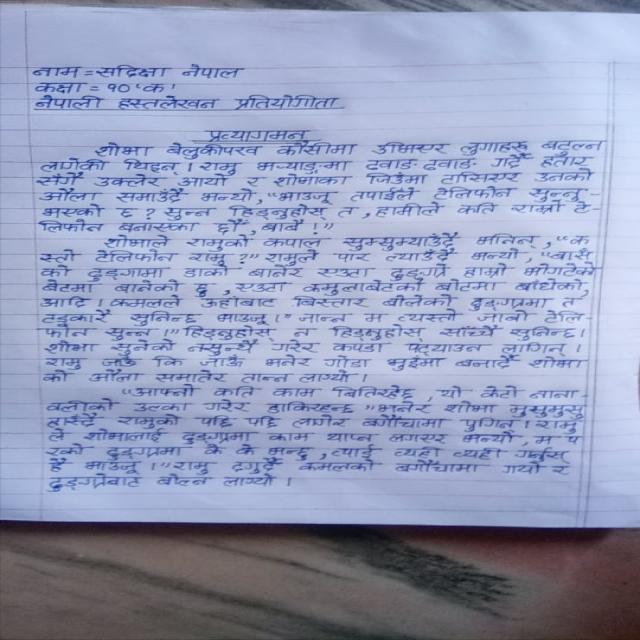 नाम = सदिक्षा नेपाल
कक्षा = १० 'क'
नेपाली हस्तलेखन प्रतियोगिता
प्रत्यागमन
शोभा बेलुकीपख कौसीमा उभिएर लुगाहरू बटुल्न
लागेकी थिइन् । रामु भर्‍याङमा ढ्वाङ ढ्वाङ गर्दै हतार
सँगै उक्लेर आयो र शोभाका जिउमा टाँसिएर उनको
औंला समाउँदै भन्यो, "भाउजू तपाईंले टेलिफोन सुन्नु-
भएको छ ? सुन्न हिड्नुहोस् त, हामीले कति राम्रो टे-
लिफोन बनाएका छौं, बाबै !"
शोभाले रामुको कपाल सुम्सुम्याउँदै भनिन्, "क
स्तो टेलिफोन रामु ?" रामुले पार ल्याउँदै भन्यो, "बाँस
को ढुङ्ग्रामा डोको बानेर एउटा ढुङ्ग्रो हाम्रो भोगटेको
बोटमा बानेको छु, एउटा कमलाबेटको बोटमा बाँधेको,
आदि । कमलले उहाँबाट बिस्तार बोलेको ढुङ्ग्रामा त
टड्कारै सुनिन्छ भाउजू ।" जान्न म त्यस्तो जाबो टेलि-
फोन सुन्न ।" हिड्नुहोस् न हिड्नुहोस् साँच्चै सुनिन्छ ।
शोभा सुनेको नसुन्यै गरेर कपडा पट्याउन लागिन् ।
रामु जाऊँ कि जाऊँ भनेर गोडा भुईंमा बजार्दै शोभा
को औंला समातेर तान्न लाग्यो ।
"आफ्नो कति काम बितिरहेछ, यो केटो नाना-
वलीको उल्का गरेर हाकिरहन्छ" भनेर शोभा मुसुमुसु
हाँस्दै रामुको पछि पछि लागेर बगैंचामा पुगिन् । रामु
ले शोभालाई ढुङ्ग्रामा काम थाप्न लगाएर भन्यो, म प
रको ढुङ्ग्रामा के के भन्छु, त्यहाँ त्यहाँ गर्नुस्
है भाउजू !" रामु दगुर्दै कमलको बगैंचामा गयो र
ढुङ्ग्रोबाट बोल्न लाग्यो ।